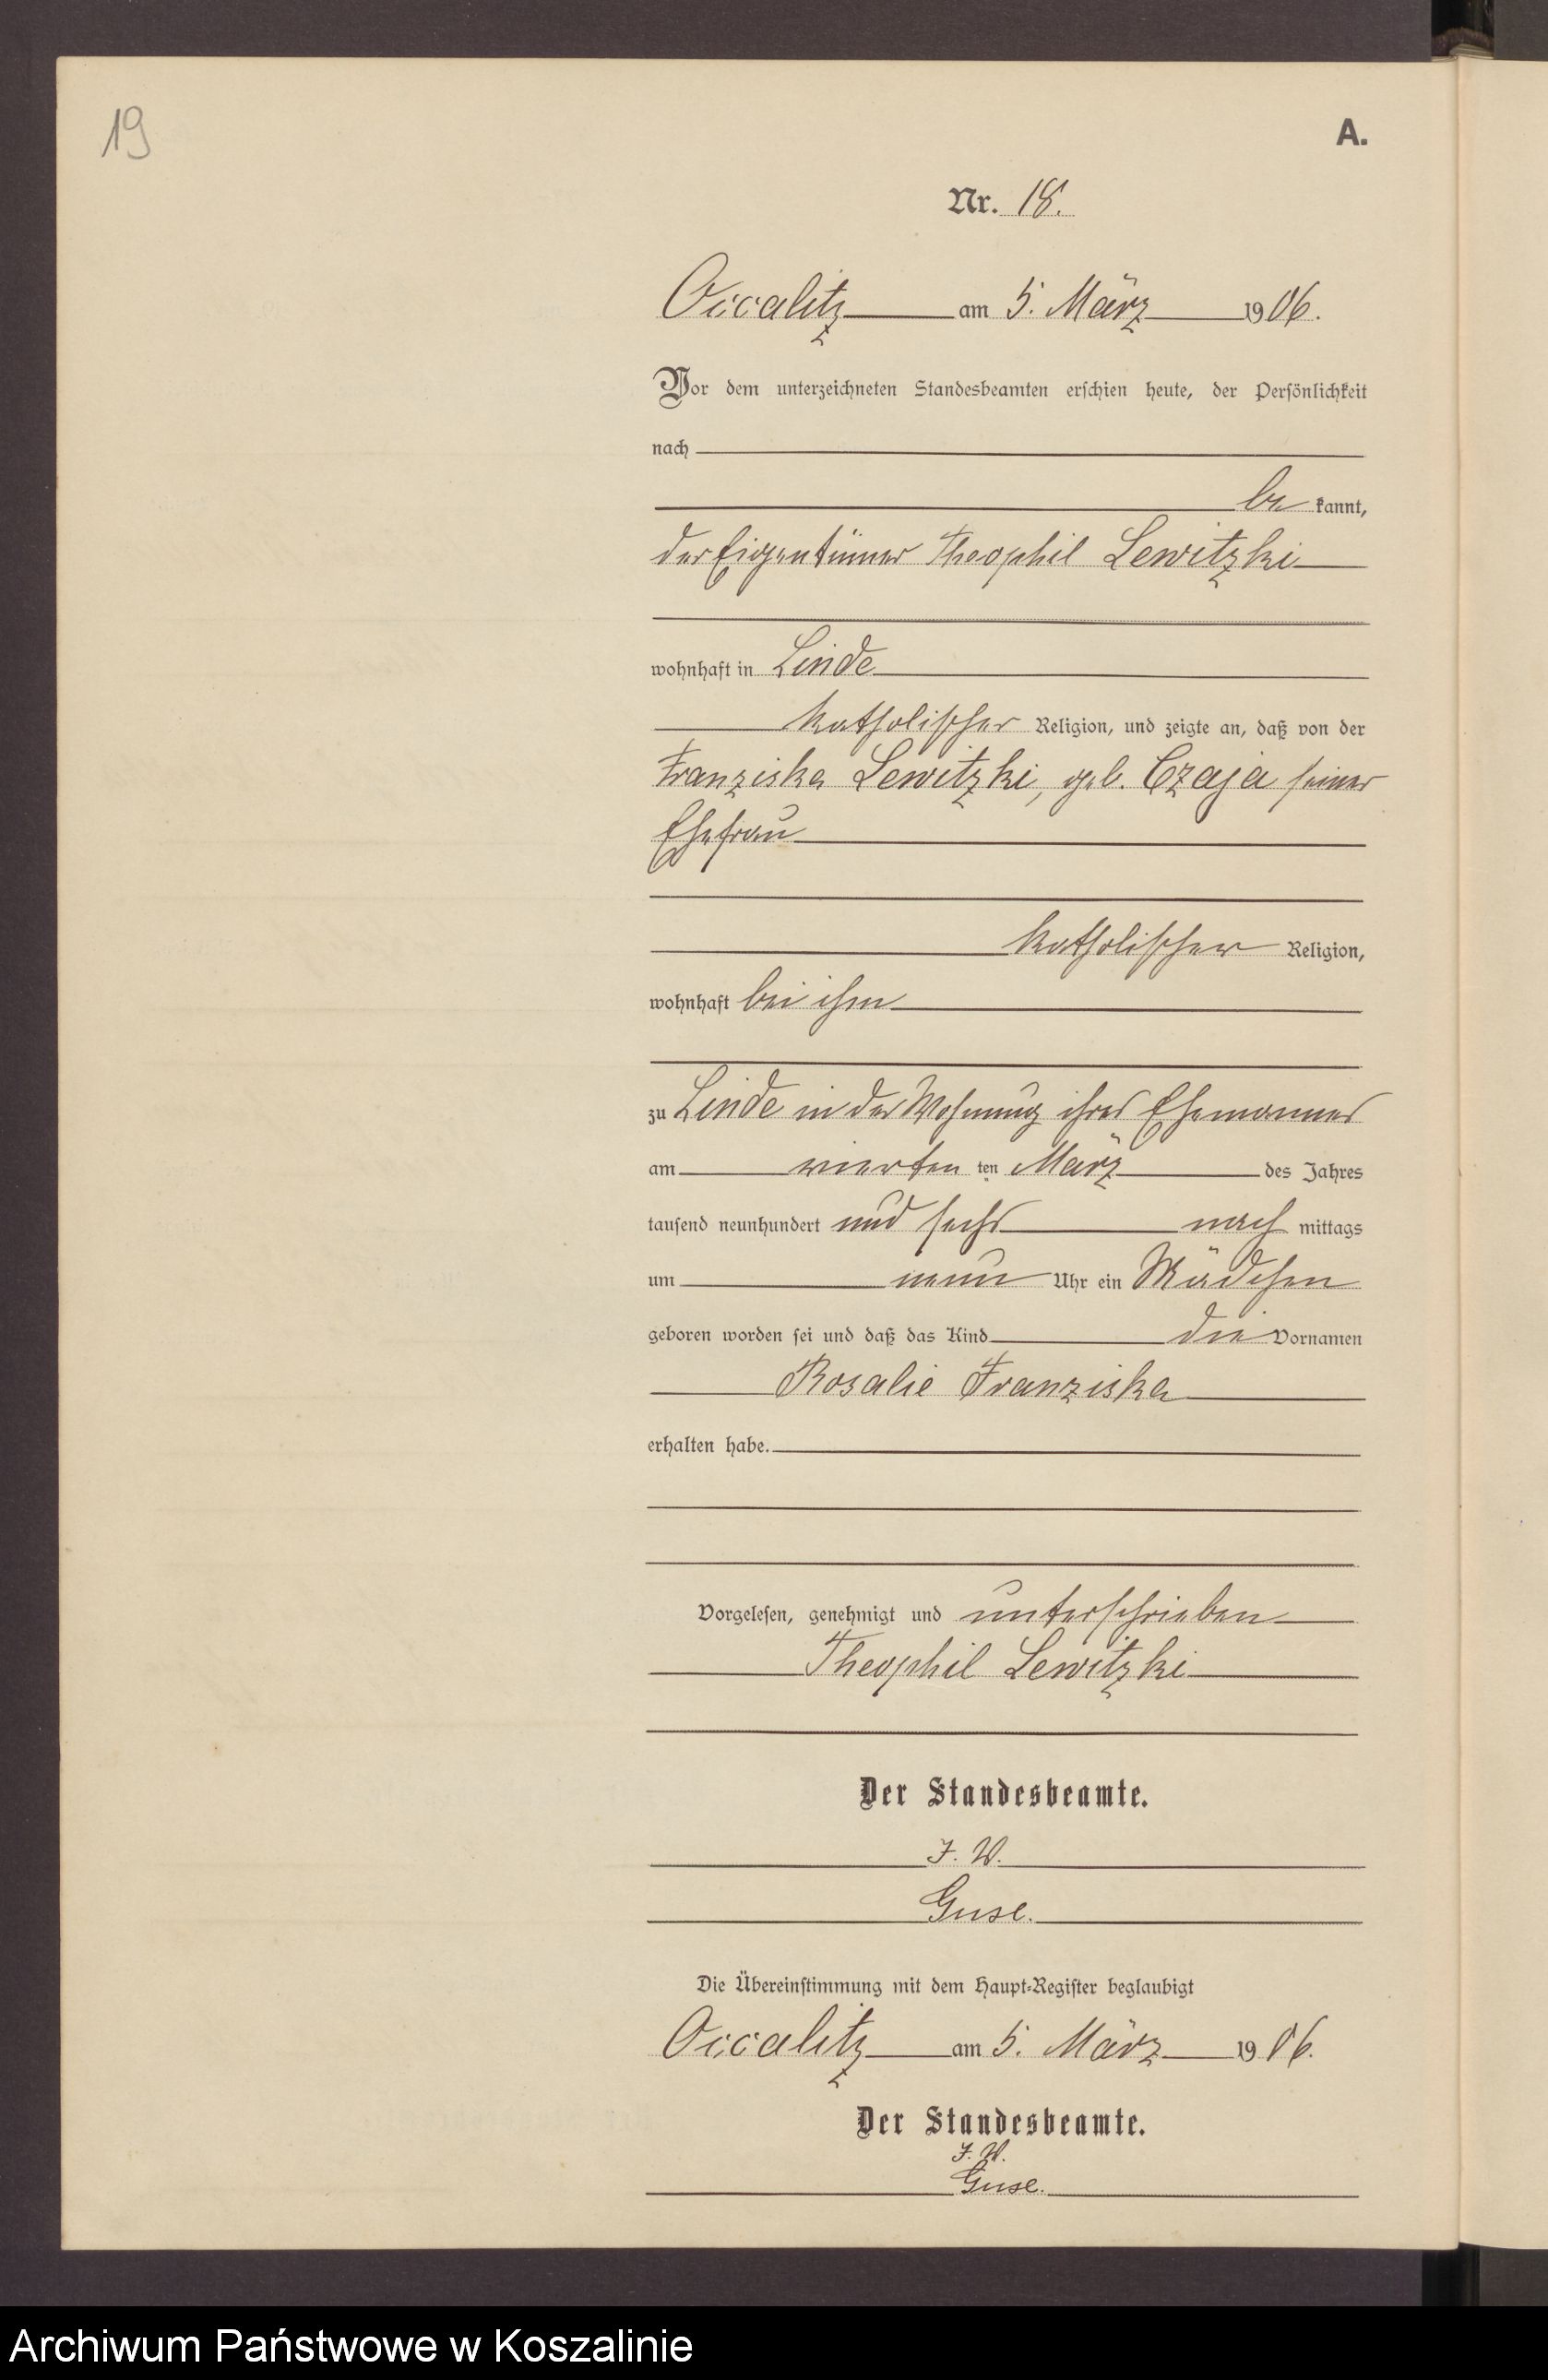 19
A.
Nr. 18.
Occalitz am 5. März 1906.
Vor dem unterzeichneten Standesbeamten erschien heute, der Persönlichkeit
nach
be kannt,
der Eigentümer Theophil Lewitzki
wohnhaft in Linde
katholischer Religion, und zeigte an, daß von der
Franziska Lewitzki, geb. Czaja seiner
Ehefrau
katholischer Religion,
wohnhaft bei ihm
zu Linde in der Wohnung ihres Ehemannes
am vierten ten März des Jahres
tausend neunhundert und sechs nach mittags
um neun Uhr ein Mädchen
geboren worden sei und daß das Kind die Vornamen
Rosalie Franziska
erhalten habe.
Vorgelesen, genehmigt und unterschrieben
Theophil Lewitzki
Der Standesbeamte.
J. V.
Guse.
Die Übereinstimmung mit dem Haupt-Register beglaubigt
Occalitz am 5. März 1906.
Der Standesbeamte.
J. V.
Guse.
Archiwum Państwowe w Koszalinie